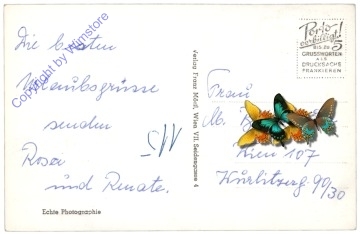 Die besten
Urlaubsgrüsse
senden
Rosa
und Renate.
Copyright by Wimstore
Echte Photographie
Verlag Franz Mörtl, Wien VII, Seidengasse 4
Porto
verbilligt!
BIS ZU 5
GRUSSWORTEN
ALS
DRUCKSACHE
FRANKIEREN
Frau
M.
Wien 107
90/30